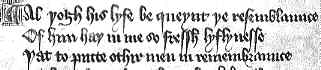 Al yogh his lyfe be queynt þe resemblaunce
Of him haþ in me so fressh lyflynesse
Þat to putte othir men in remembraunce